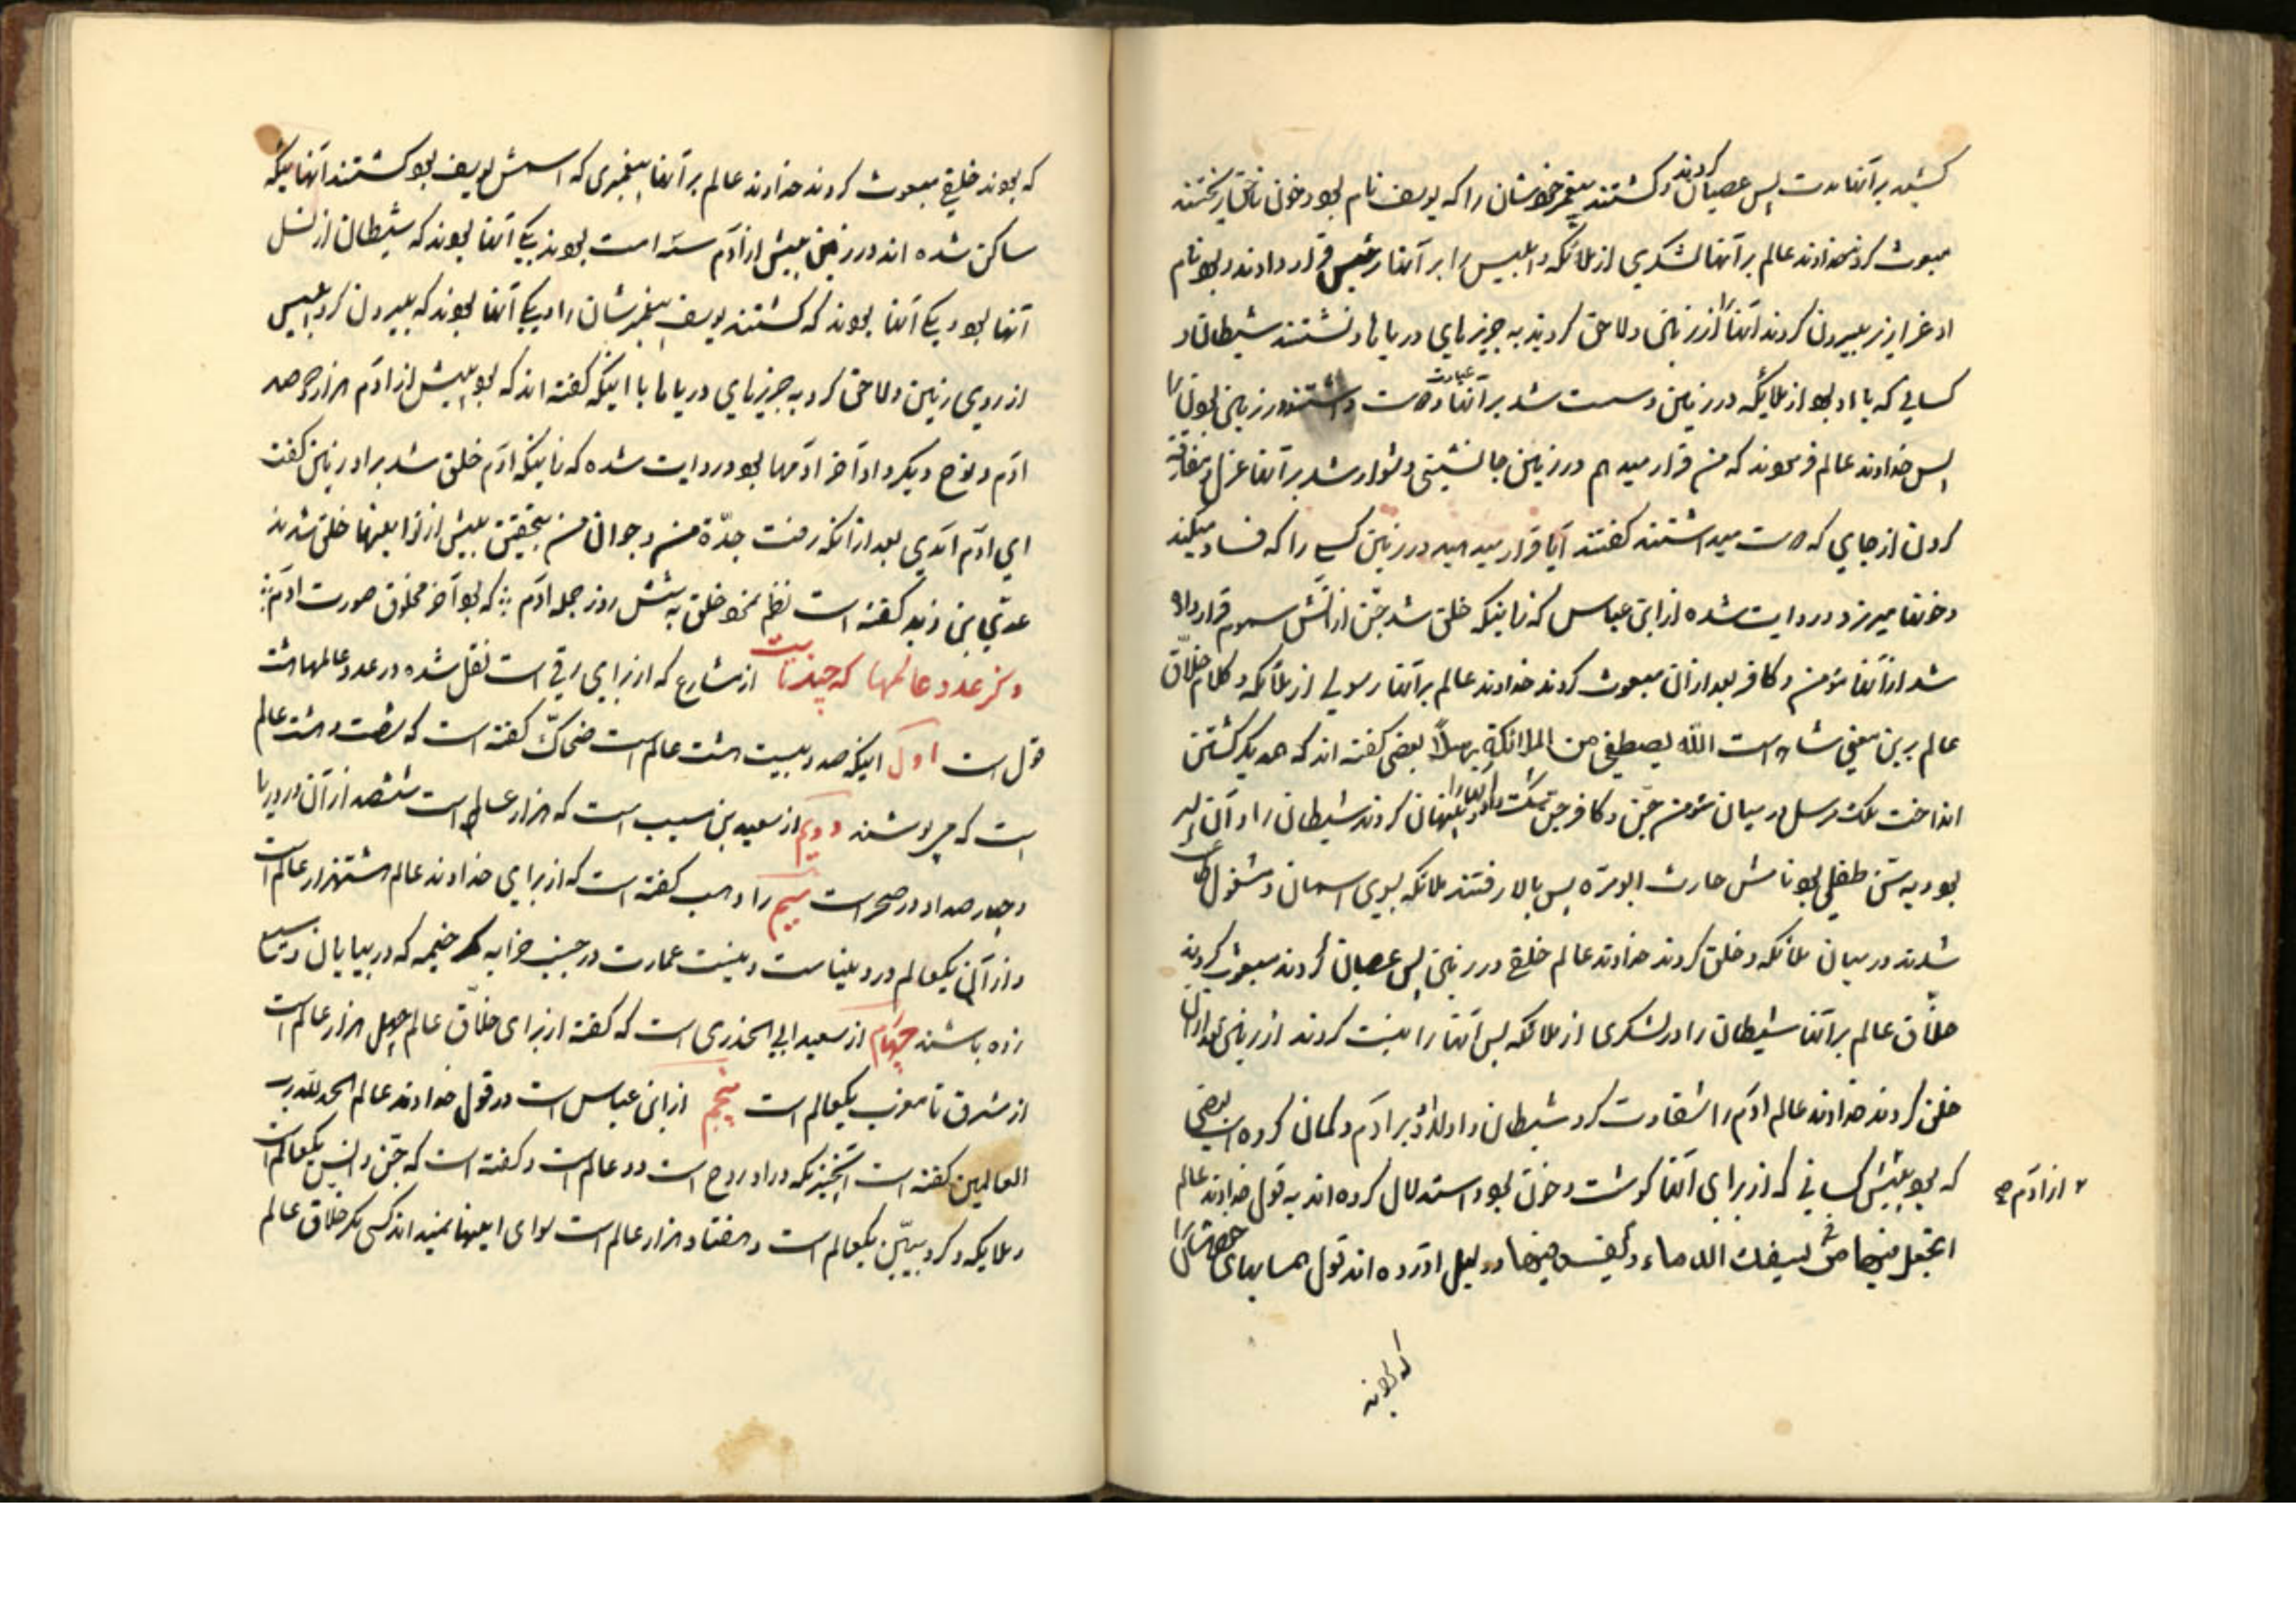 کشید برآنها مدت پس عصیان کردند و کشتند پیغمبر خودشان را که یوسف نام بود و خون ناحق ریختند
مبعوث کرد خداوند عالم برآنها لشکری از ملائکه و ابلیس را برآنها رئیس قرار دادند و بود نام
او عزازیز بیرون کردند آنها را از زمین و لاحق کردند به جزیرهای دریاها و نشستند شیطان و
کسانی که با او بود از ملائکه در زمین و سست شد برآنها عبادت و دوست داشتند در زمین بودن را
پس خداوند عالم فرمودند که من قرار میدهم در زمین جانشینی و دشوار شد برآنها عزل و مفارقت
کردن از جای که دوست میداشتند گفتند آیا قرار میدهید در زمین کسی را که فساد میکند
و خونها میریزد و روایت شده از ابن عباس که زمانیکه خلق شد جن از آتش سموم قرار داده
شد از آنها مؤمن و کافر بعد از آن مبعوث کردند خداوند عالم برآنها رسولی از ملائکه و کلام خلّاق
عالم برین معنی شاهد است اللّه یصطفی من الملائکة رسلاً بعضی گفته اند که همدیگر کشتن
انداخت ملک مرسل در میان مؤمن جن و کافر جن شکست داد آنها را و پنهان کردند شیطان را و آن پسر
بود و به سن طفلی بود نامش حارث ابومرّه پس بالا رفتند ملائکه بسوی اسمان و مشغول طاعت
شدند در میان ملائکه و خلق کردند خداوند عالم خلقی در زمین پس عصیان کردند مبعوث کردند
خلّاق عالم برآنها شیطان را در لشکری از ملائکه پس آنها را نیست کردند از زمین بعد از آن
خلق کردند خداوند عالم ادم را شقاوت کرد شیطان و اولاد او بر ادم و گمان کرده است بعضی
که بود پیش از آدم کسانی که از برای آنها گوشت و خون بود و استدلال کرده اند به قول خداوند عالم
اتجعل فیها من یسفک الدماء و یفسد فیها و دلیل اورده اند قول
که بودند
که بودند خلقی مبعوث کردند خداوند عالم برآنها پیغمبری که اسمش یوسف بود کشتند آنهائیکه
ساکن شده اند در زمین پیش از آدم سه امت بودند یکی آنها بودند که شیطان از نسل
آنها بود و یکی آنها بودند که کشتند یوسف پیغمبرشان را و یکی آنها بودند که بیرون کرد ابلیس
از روی زمین و لاحق کرد به جزیرهای دریاها با اینکه گفته اند که بود پیش از ادم هزار و صد
ادم و نوح دیگر و او آخر ادمها بود و روایت شده که زمانیکه ادم خلق شد بر او زمین گفت
ای ادم آمدی بعد از آنکه رفت جدّة من و جوانی من بتحقیق پیش از تو اینها خلق شدند
عدی بن زید گفته است نظم نمود خلق به شش روز جمله ادم ؞ که بود آخر مخلوق صورت ادم ؞
ذکر عدد عالمها که چند تاست از مشارع که از برای رقی است نقل شده در عدد عالمها هشت
قول است اول اینکه صد و بیست هشت عالم است ضحاک گفته است که شصت و هشت عالم
است که می پوشند دویم از سعید بن مسیب است که هزار عالم است ششصد از آن در دریا
و چهار صد او در صحراست سیم را وهب گفته است که از برای خداوند عالم هشتهزار عالم است
و از آن یکعالم در دنیاست و نیست عمارت در جنب خرابه مگر خیمه که در بیابان وسیع
زده باشند چهارم از سعید ابی الخدری است که گفته از برای خلّاق عالم چهل هزار عالم است
از مشرق تا مغرب یکعالم است پنجم از ابن عباس است در قول خداوند عالم الحمد للّه رب
العالمین گفته است آنچیزیکه در او روح است دو عالم است و گفته است که جن و انس یکعالم است
و ملایکه و کروبیّین یکعالم است و هفتاد هزار عالم است سوای اینها نمیداند کسی مگر خلاق عالم